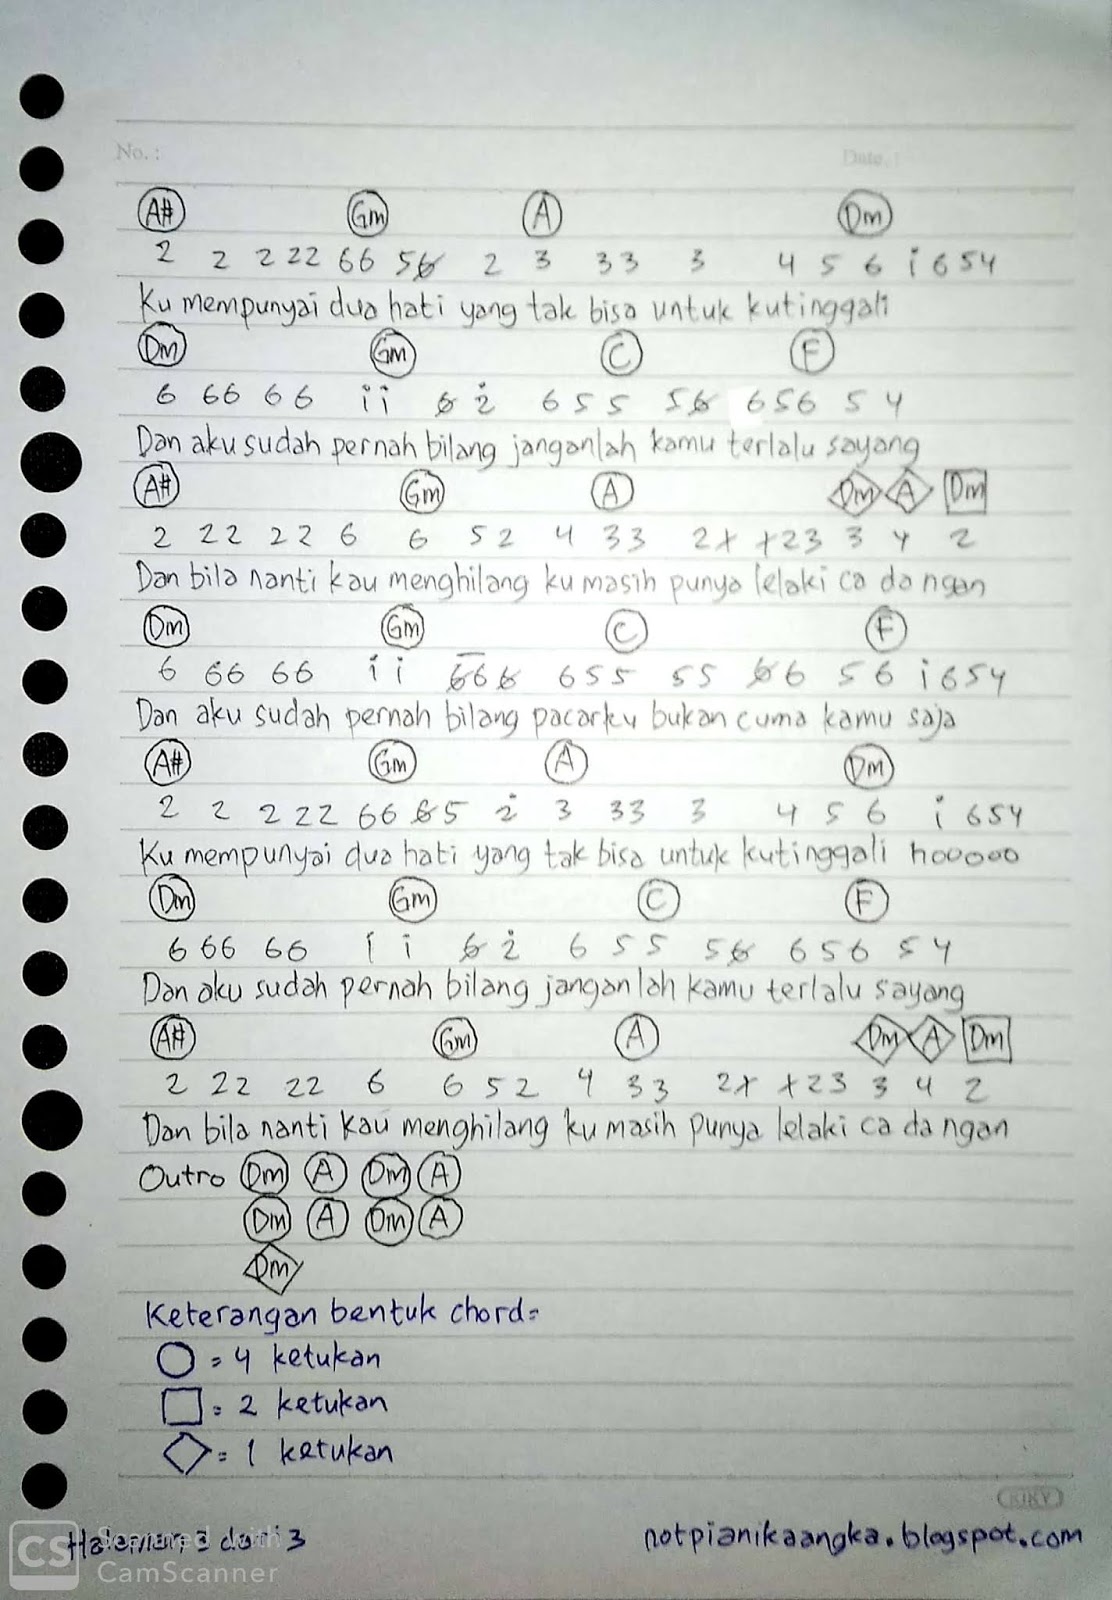 No. :
Date. :
A# Gm A Dm
2 2 2 22 66 56 2 3 33 3 4 5 6 i 6 5 4
Ku mempunyai dua hati yang tak bisa untuk kutinggali
Dm Gm C F
6 66 66 i i 6 2 6 5 5 56 656 5 4
Dan aku sudah pernah bilang janganlah kamu terlalu sayang
A# Gm A Dm A Dm
2 22 22 6 6 5 2 4 33 2x x23 3 4 2
Dan bila nanti kau menghilang ku masih punya lelaki ca da ngan
Dm Gm C F
6 66 66 i i 666 655 55 66 56 i654
Dan aku sudah pernah bilang pacarku bukan cuma kamu saja
A# Gm A Dm
2 2 2 22 66 65 2 3 33 3 4 5 6 i 654
Ku mempunyai dua hati yang tak bisa untuk kutinggali hooooo
Dm Gm C F
6 66 66 i i 6 2 6 5 5 56 656 5 4
Dan aku sudah pernah bilang janganlah kamu terlalu sayang
A# Gm A Dm A Dm
2 22 22 6 6 5 2 4 33 2x x23 3 4 2
Dan bila nanti kau menghilang ku masih punya lelaki ca da ngan
Outro Dm A Dm A
Dm A Dm A
Dm
Keterangan bentuk chord=
= 4 ketukan
= 2 ketukan
= 1 ketukan
KIKY
Halaman 3 dari 3
notpianikaangka.blogspot.com
CS Scanned with
CamScanner